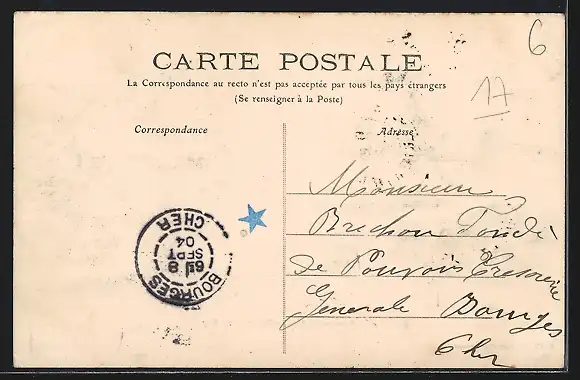 6
17
CARTE POSTALE
La Correspondance au recto n'est pas acceptée par tous les pays étrangers
(Se renseigner à la Poste)
Correspondance
Adresse
Monsieur
Brechon Fondé
de Pouvoirs Tresorerie
Generale Bourges
Cher
BOURGES
6E 8
SEPT
04
CHER